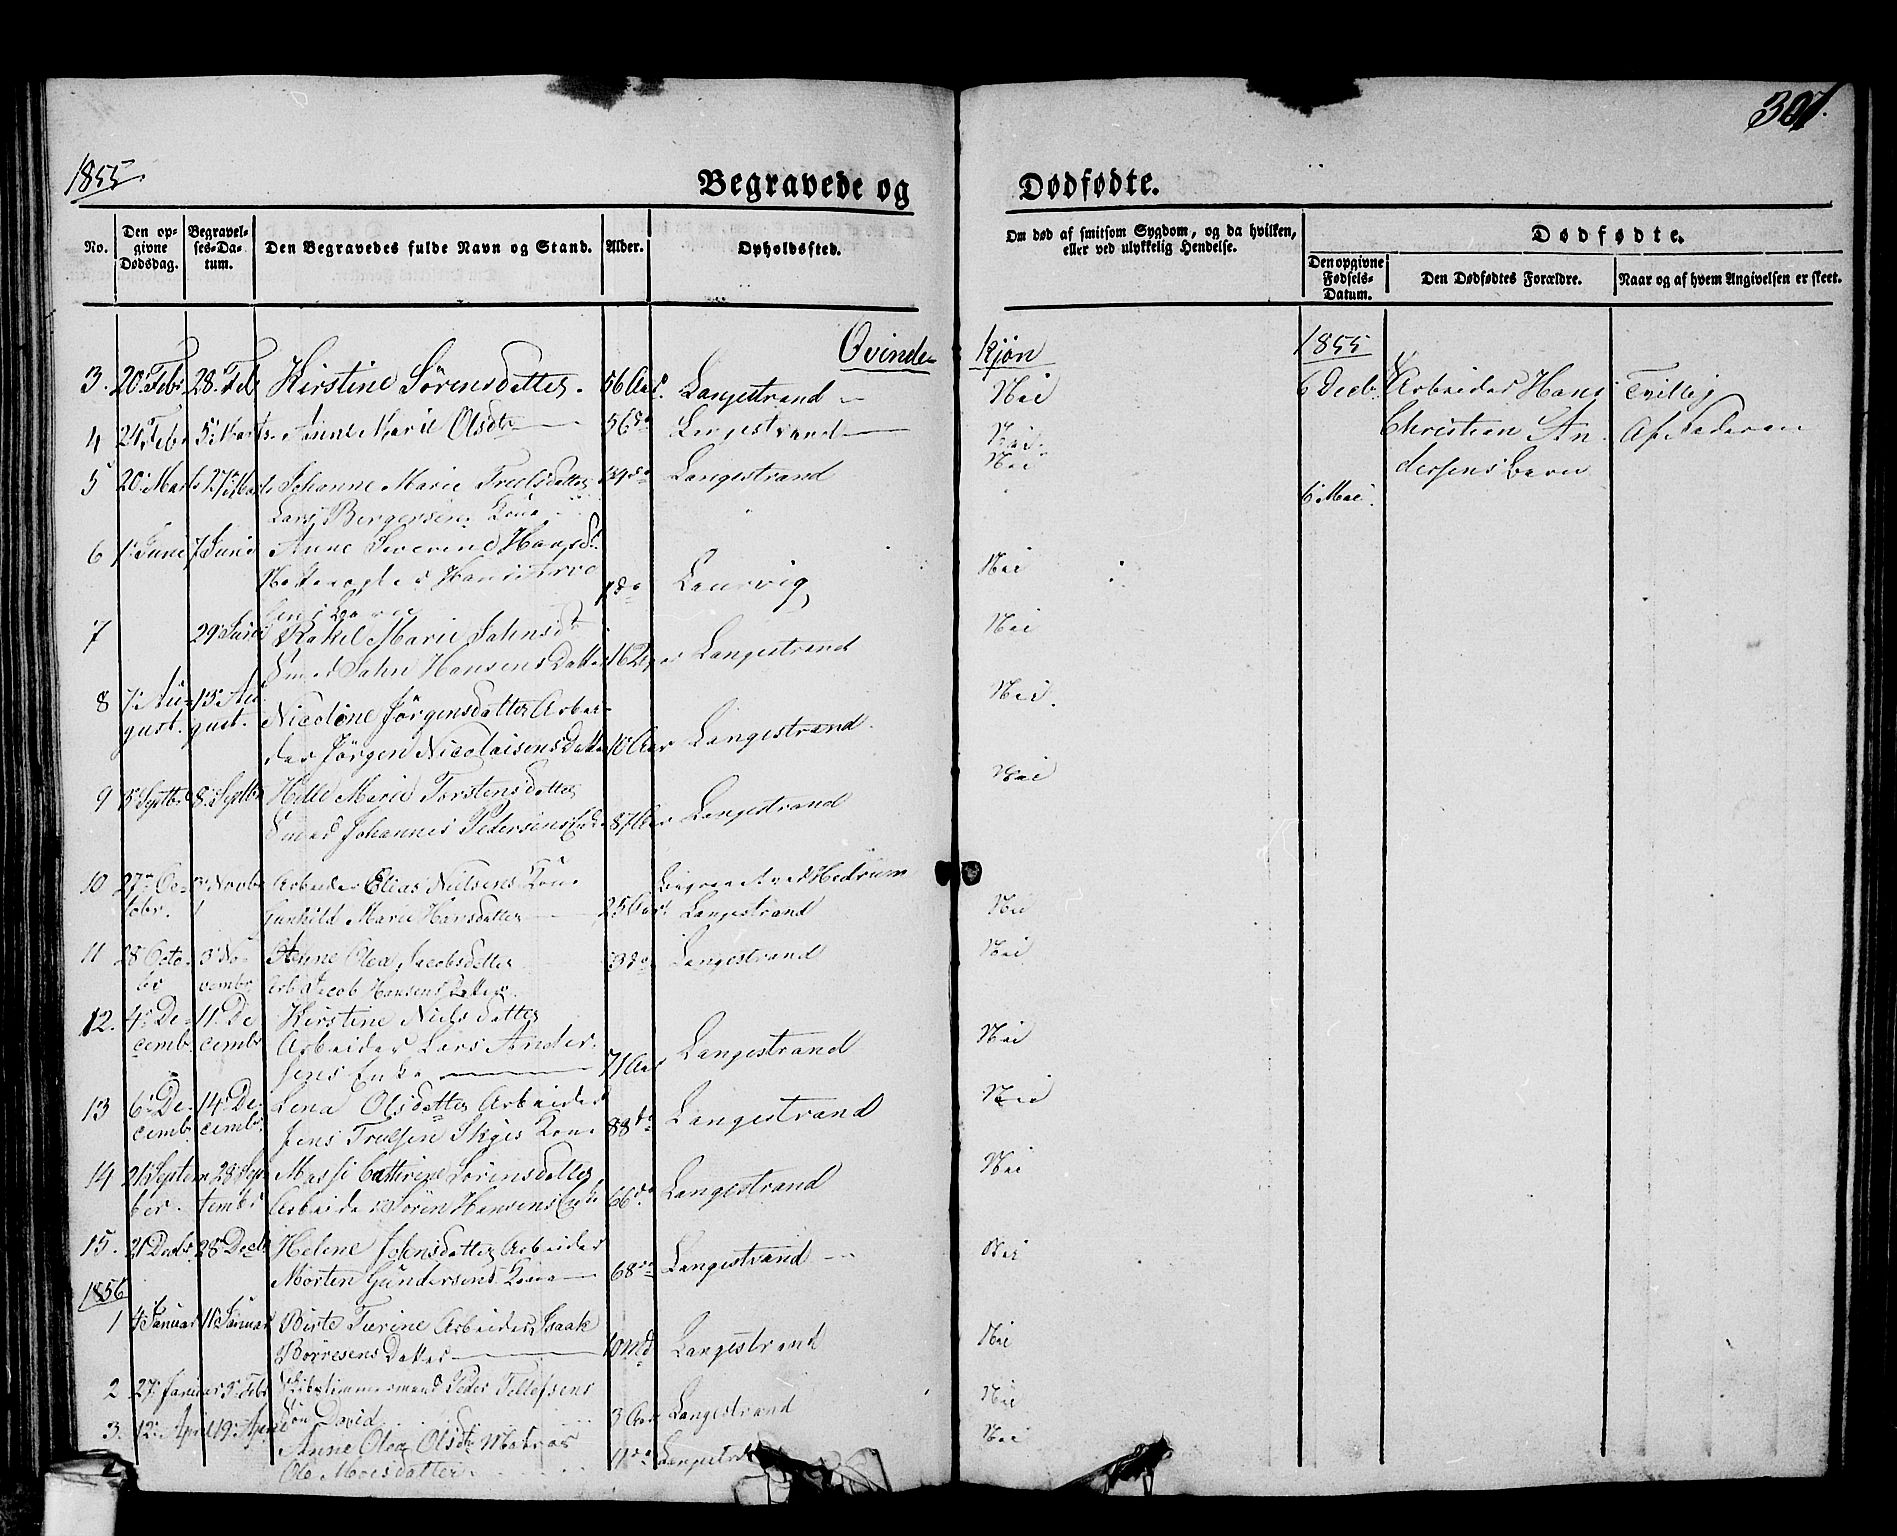 307.
1855.
Begravede og Dødfødte.
No.
Den opgivne Dødsdag.
Begravelses-Datum.
Den Begravedes fulde Navn og Stand.
Alder.
Opholdssted.
Om død af smitsom Sygdom, og da hvilken, eller ved ulykkelig Hendelse.
Dødfødte.
Den opgivne Fødsels-Datum.
Den Dødfødtes Forældre.
Naar og af hvem Angivelsen er skeet.
Qvinde- kjøn
1855
3. 20. Febr. 28. Feb Kirstine Sørensdatter. 56 Aar. Langestrand Nei
6 Decb. Arbeider Hans Tvillig
Christian An- Af Faderen
dersens Barn
6 Mai
4 24. Feb. 5. Marts Anne Marie Olsdtr 56 do Langestrand Nei
5 20. Marts 27. Marts Johanne Marie Truelsdatter do Langestrand Nei
Lars Bergersens Kone
6 1. Juni 7 Juni Anne Severine Hansd.
Hans do Laurvig Nei
7 29. Juni Rakel Marie Jahnsd
Smed Jahn Hansens Datter 16 Langestrand Nei
8 7. Au- 13. Au- Nicoline Jørgensdatter Arbei-
gust. gust. der Jørgen Nicolaisens Datter 10 Aar Langestrand. Nei.
9 Septbr 8. Septbr Marie Torstensdatter
Smed Johannes Pedersens Enke 87 Aar Langestrand Nei
10 27. Oc- 3. Novbr Arbeider Elias Nielsens Kone Begravet ved Hedrum
tobr. Gunhild Marie Hansdatter 25 Aar. Langestrand Nei
11 28 Octo- 3. No- Anne Olea Jacobsdatter 3 do Langestrand Nei
br vembr Arb Jacob Hansens Datter.
12. 4. De- 11. De Kirstine Nielsdatter
cemb. cembr Arbeider Lars Ander-
sens Enke 71 Aar Langestrand Nei
13 6. De- 14. De- Lena Olsdatter Arbeider
cemb. cembr. Jens Truelsen Kone 88 do Langestrand Nei
14 21 Septem 28 Sep Massi Cathrine Sørensdatter
ber. tembr Arbeider Søren Hansens Enke 66 do Langestrand Nei
15. 21 Decbr 28 Decb Helene Johnsdatter Arbeider
Morten Gundersens Kone 68 do Langestrand Nei
1856
1 4 Januar 11 Januar Birte Turine Arbeider Isaak
Børresens Datter 10 Md Langestrand Nei
2 27. Januar 3. Febr Skibstimmermand Peder Tellefsens
Søn David 3 Aar Langestrand Nei
3. 12. April 19. April Anne Olea Olsdtr Matros
Ole Datter. do Langestrd Nei